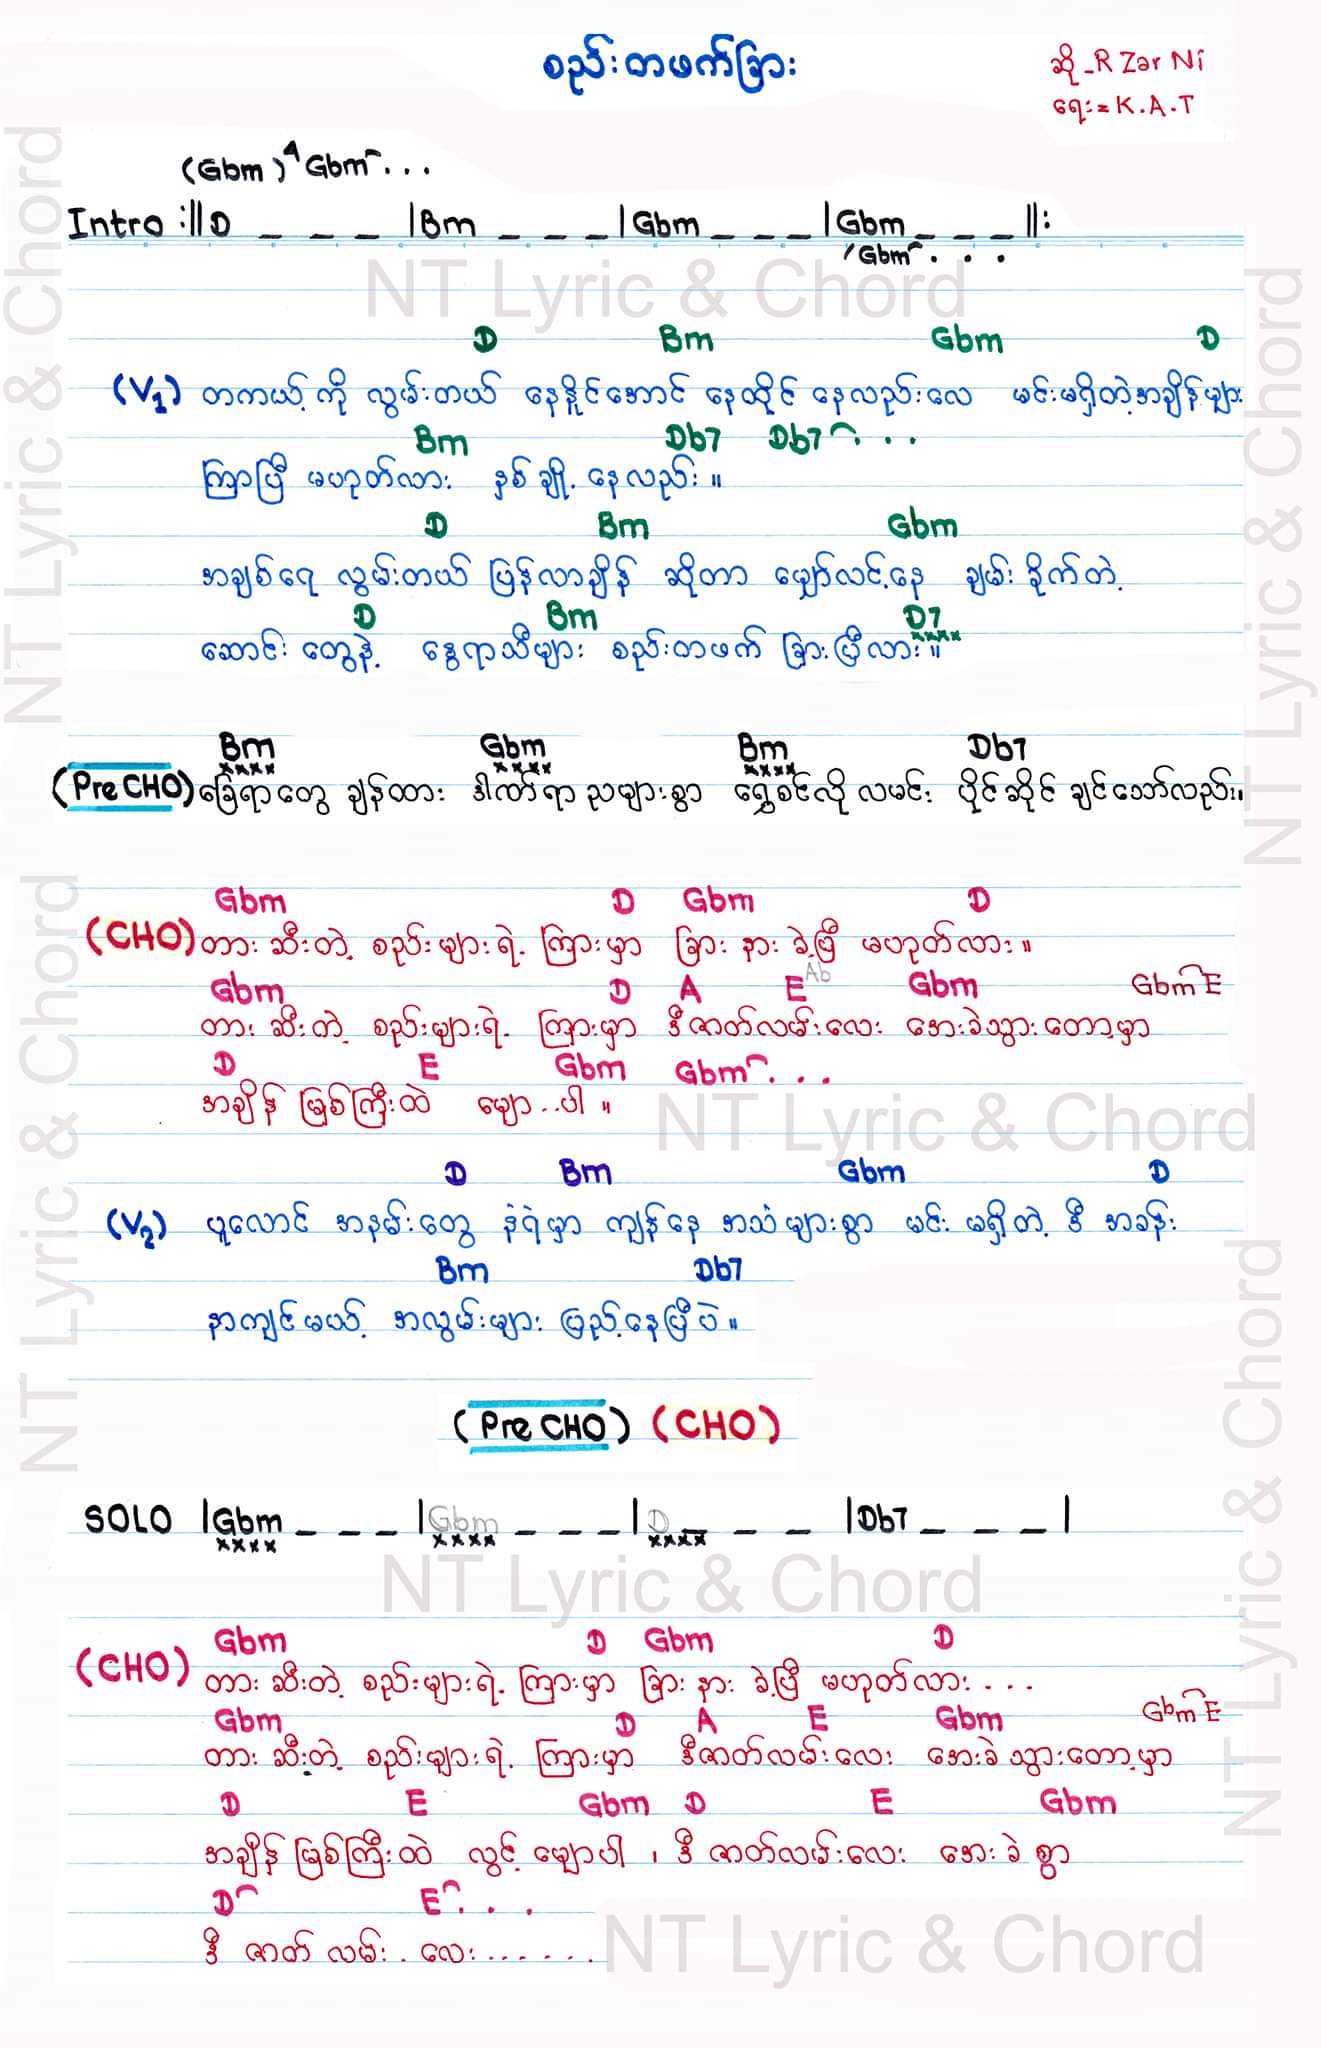 စည်းတဖက်ခြား
ဆို - R Zar Ni
ရေး = K.A.T
(Gbm)4 Gbm⌒...
Intro :|| D _ _ _ | Bm _ _ _ | Gbm _ _ _ | Gbm _ _ _ ||:
(Gbm⌒...
NT Lyric & Chord
D Bm Gbm D
(V1) တကယ့်ကို လွမ်းတယ် နေနိူင်အောင် နေထိုင် နေလည်းလေ မင်းမရှိတဲ့အချိန်များ
Bm Db7 Db7⌒...
ကြာပြီ မဟုတ်လား နှစ်ချို့ နေလည်း ။
D Bm Gbm
အချစ်ရေ လွမ်းတယ် ပြန်လာချိန် ဆိုတာ မျှော်လင့်နေ ချမ်းခိုက်တဲ့
D Bm D7
xxxx
ဆောင်းတွေနဲ့ နွေရာသီများ စည်းတဖက် ခြားပြီလား ။
Bm Gbm Bm Db7
xxxx xxxx xxxx
(Pre CHO) ခြေရာတွေ ချန်ထား ဒါဏ်ရာ ညများစွာ ရွှေစင်လို လမင်း ပိုင်ဆိုင် ချင်သော်လည်း။
Gbm D Gbm D
(CHO) တား ဆီးတဲ့ စည်းများရဲ့ ကြားမှာ ခြား နားခဲ့ပြီ မဟုတ်လား ။
Gbm D A E Ab Gbm Gbm⌒E
တား ဆီးတဲ့ စည်းများရဲ့ ကြားမှာ ဒီဇာတ်လမ်းလေး အေးခဲသွားတော့မှာ
D E Gbm Gbm⌒...
အချိန် မြစ်ကြီးထဲ မျော..ပါ ။
NT Lyric & Chord
D Bm Gbm D
(V2) ပူလောင် အနမ်းတွေ နံရံမှာ ကျန်နေ အသံများစွာ မင်း မရှိတဲ့ ဒီ အခန်း
Bm Db7
နာကျင်မယ့် အလွမ်းများ ပြည့်နေပြီပဲ ။
(Pre CHO) (CHO)
SOLO | Gbm _ _ _ | Gbm _ _ _ | D _ _ _ | Db7 _ _ _ |
xxxx xxxx xxxx
NT Lyric & Chord
Gbm D Gbm D
(CHO) တား ဆီးတဲ့ စည်းများရဲ့ ကြားမှာ ခြား နား ခဲ့ပြီ မဟုတ်လား ...
Gbm D A E Gbm Gbm⌒E
တား ဆီးတဲ့ စည်းများရဲ့ ကြားမှာ ဒီဇာတ်လမ်းလေး အေးခဲသွားတော့မှာ
D E Gbm D E Gbm
အချိန် မြစ်ကြီးထဲ လွင့် မျောပါ ၊ ဒီ ဇာတ်လမ်းလေး အေးခဲ စွာ
D⌒ E⌒...
ဒီ ဇာတ် လမ်း . လေး ......
NT Lyric & Chord
NT Lyric & Chord
NT Lyric & Chord
NT Lyric & Chord
NT Lyric & Chord